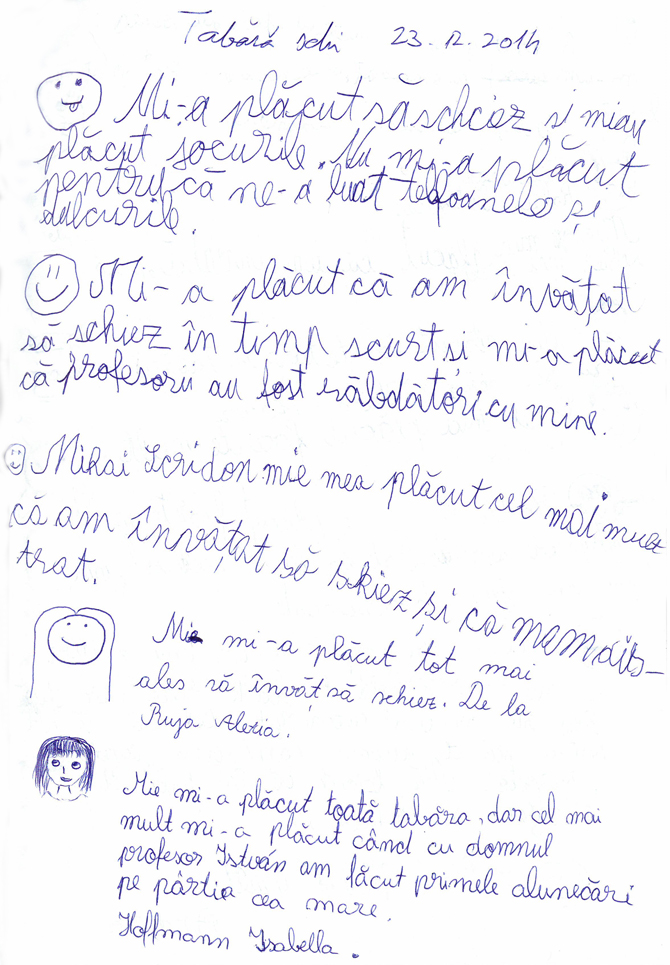 Tabără schi 23.12.2014
Mi-a plăcut să schcez și miau
plăcut jocurile. Nu mi-a plăcut
pentru că ne-a luat telefoanele și
dulcurile.
Mi-a plăcut că am învățat
să schiez în timp scurt si mi-a plăcut
că profesorii au fost răbdători cu mine.
Mihai Scridon mie mea plăcut cel mai mult
că am învățat să skiez și că mamais-
trat.
Mie mi-a plăcut tot mai
ales să învăț să schiez. De la
Ruja Alezia.
Mie mi-a plăcut toată tabăra, dar cel mai
mult mi-a plăcut când cu domnul
profesor István am făcut primele alunecări
pe pârtia cea mare.
Hoffmann Isabella.